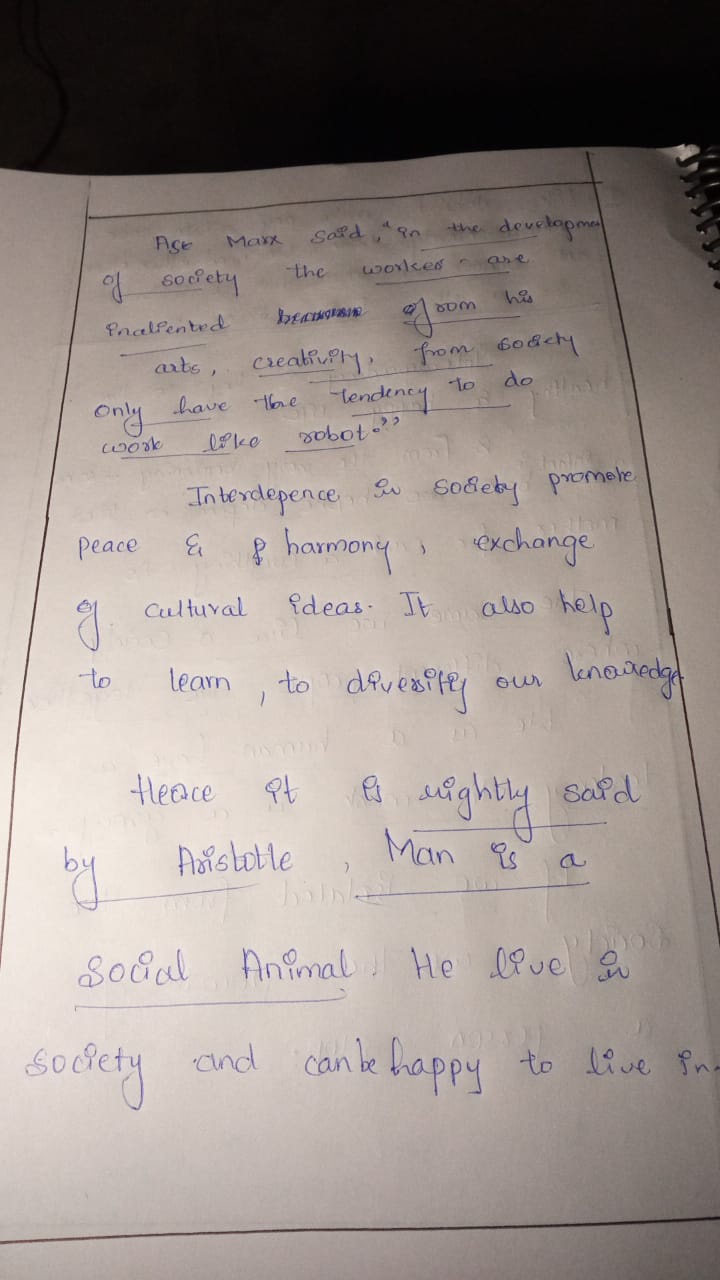 As Marx said, "in the developmen
of society the worker are
inaliented from his
arts, creativity, from society
only have the tendency to do
work like robot."
Interdepence in society promote
peace & harmony, exchange
of cultural ideas. It also help
to learn, to diversify our knowledge
Hence it is rightly said
by Aristotle, Man is a
Social Animal. He live in
society and can be happy to live in